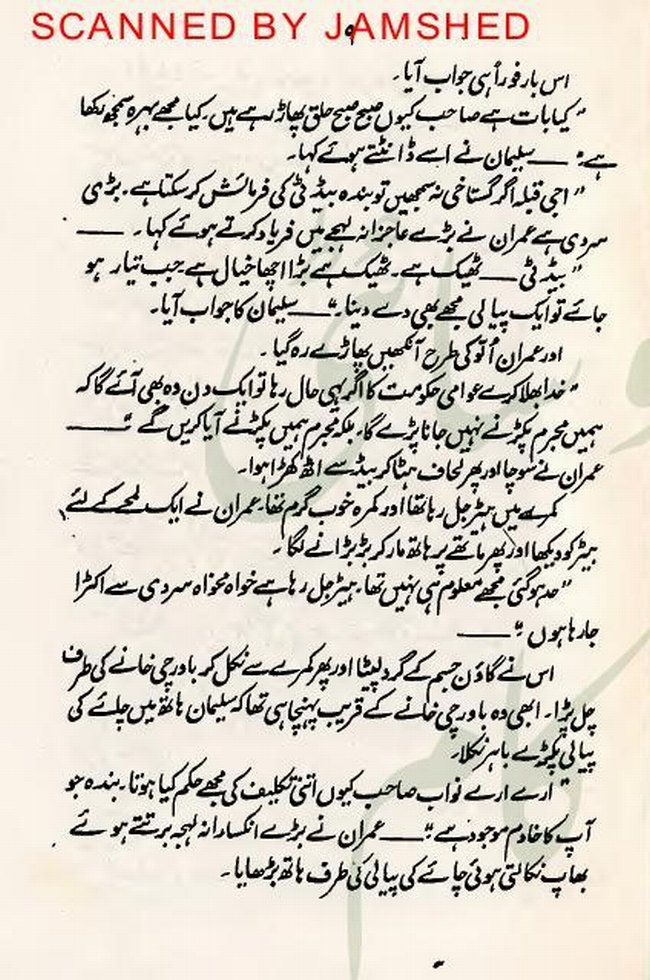 SCANNED BY JAMSHED
۹
اس بار فوراً ہی جواب آیا۔
"کیا بات ہے صاحب کیوں صبح صبح حلق پھاڑ رہے ہیں۔ کیا مجھے بہرہ سمجھ رکھا
ہے"۔ ــــ سلیمان نے اسے ڈانٹتے ہوئے کہا۔
"اجی قبلہ اگر گستاخی نہ سمجھیں تو بندہ بیڈ ٹی کی فرمائش کر سکتا ہے۔ بڑی
سردی ہے عمران نے بڑے عاجزانہ لہجے میں فریاد کرتے ہوئے کہا۔ ــــ
"بیڈ ٹی ــــ ٹھیک ہے۔ ٹھیک ہے بڑا اچھا خیال ہے۔ جب تیار ہو
جائے تو ایک پیالی مجھے بھی دے دینا۔" ــــ سلیمان کا جواب آیا۔
اور عمران اُلّو کی طرح آنکھیں پھاڑے رہ گیا۔
"خدا بھلا کرے عوامی حکومت کا اگر یہی حال رہا تو ایک دن وہ بھی آئے گا کہ
ہمیں مجرم پکڑنے نہیں جانا پڑے گا۔ بلکہ مجرم ہمیں پکڑنے آیا کریں گے"۔ ــــ
عمران نے سوچا اور پھر لحاف ہٹا کر بیڈ سے اٹھ کھڑا ہوا۔
کمرے میں ہیٹر جل رہا تھا اور کمرہ خوب گرم تھا۔ عمران نے ایک لمحے کے لئے
ہیٹر کو دیکھا اور پھر ماتھے پر ہاتھ مار کر بڑبڑانے لگا۔
"حد ہو گئی مجھے معلوم ہی نہیں تھا۔ ہیٹر جل رہا ہے خواہ مخواہ سردی سے اکڑا
جا رہا ہوں"۔ ــــ
اس نے گاؤن جسم کے گرد لپیٹا اور پھر کمرے سے نکل کر باورچی خانے کی طرف
چل پڑا۔ ابھی وہ باورچی خانے کے قریب پہنچا ہی تھا کہ سلیمان ہاتھ میں چائے کی
پیالی پکڑے باہر نکلا۔
"ارے ارے نواب صاحب کیوں اتنی تکلیف کی مجھے حکم کیا ہوتا۔ بندہ جو
آپ کا خادم موجود ہے"۔ ــــ عمران نے بڑے انکسارانہ لہجہ برتتے ہوئے
بھاپ نکالتی ہوئی چائے کی پیالی کی طرف ہاتھ بڑھایا۔